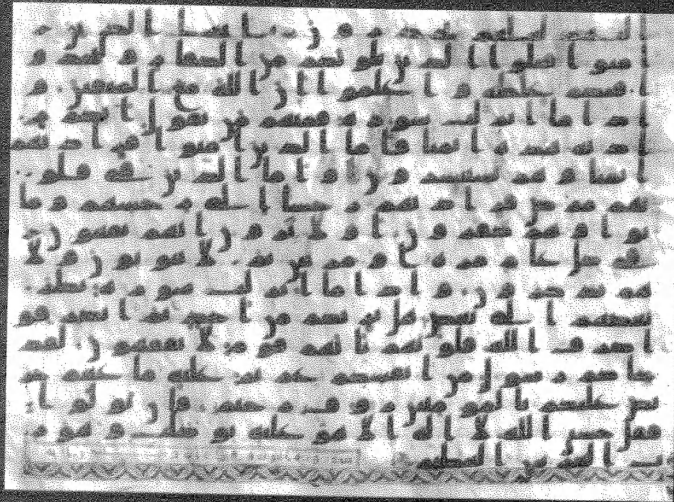 اليهم لعلهم يحذرون يايها الذين ا
منوا قتلوا الذين يلونكم من الكفار وليجدو
ا فيكم غلظه واعلموا ان الله مع المتقين و
اذا ما انزلت سوره فمنهم من يقول ايكم ز
ادته هذه ايمنا فاما الذين امنوا فزادتهم
ايمنا وهم يستبشرون واما الذين في قلو
بهم مرض فزادتهم رجسا الى رجسهم وما
توا وهم كفرون اولا يرون انهم يفتنون
في كل عام مره او مرتين ثم لا يتوبون ولا
هم يذكرون واذا ما انزلت سوره نظر
بعضهم الى بعض هل يريكم من احد ثم انصرفو
ا صرف الله قلوبهم بانهم قوم لا يفقهون لقد
جاكم رسول من انفسكم عزيز عليه ما عنتم حر
يص عليكم بالمومنين روف رحيم فان تولوا
فقل حسبي الله لا اله الا هو عليه توكلت وهو ر
ب العرش العظيم